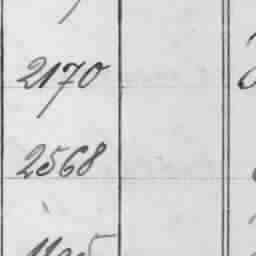 2170
2568